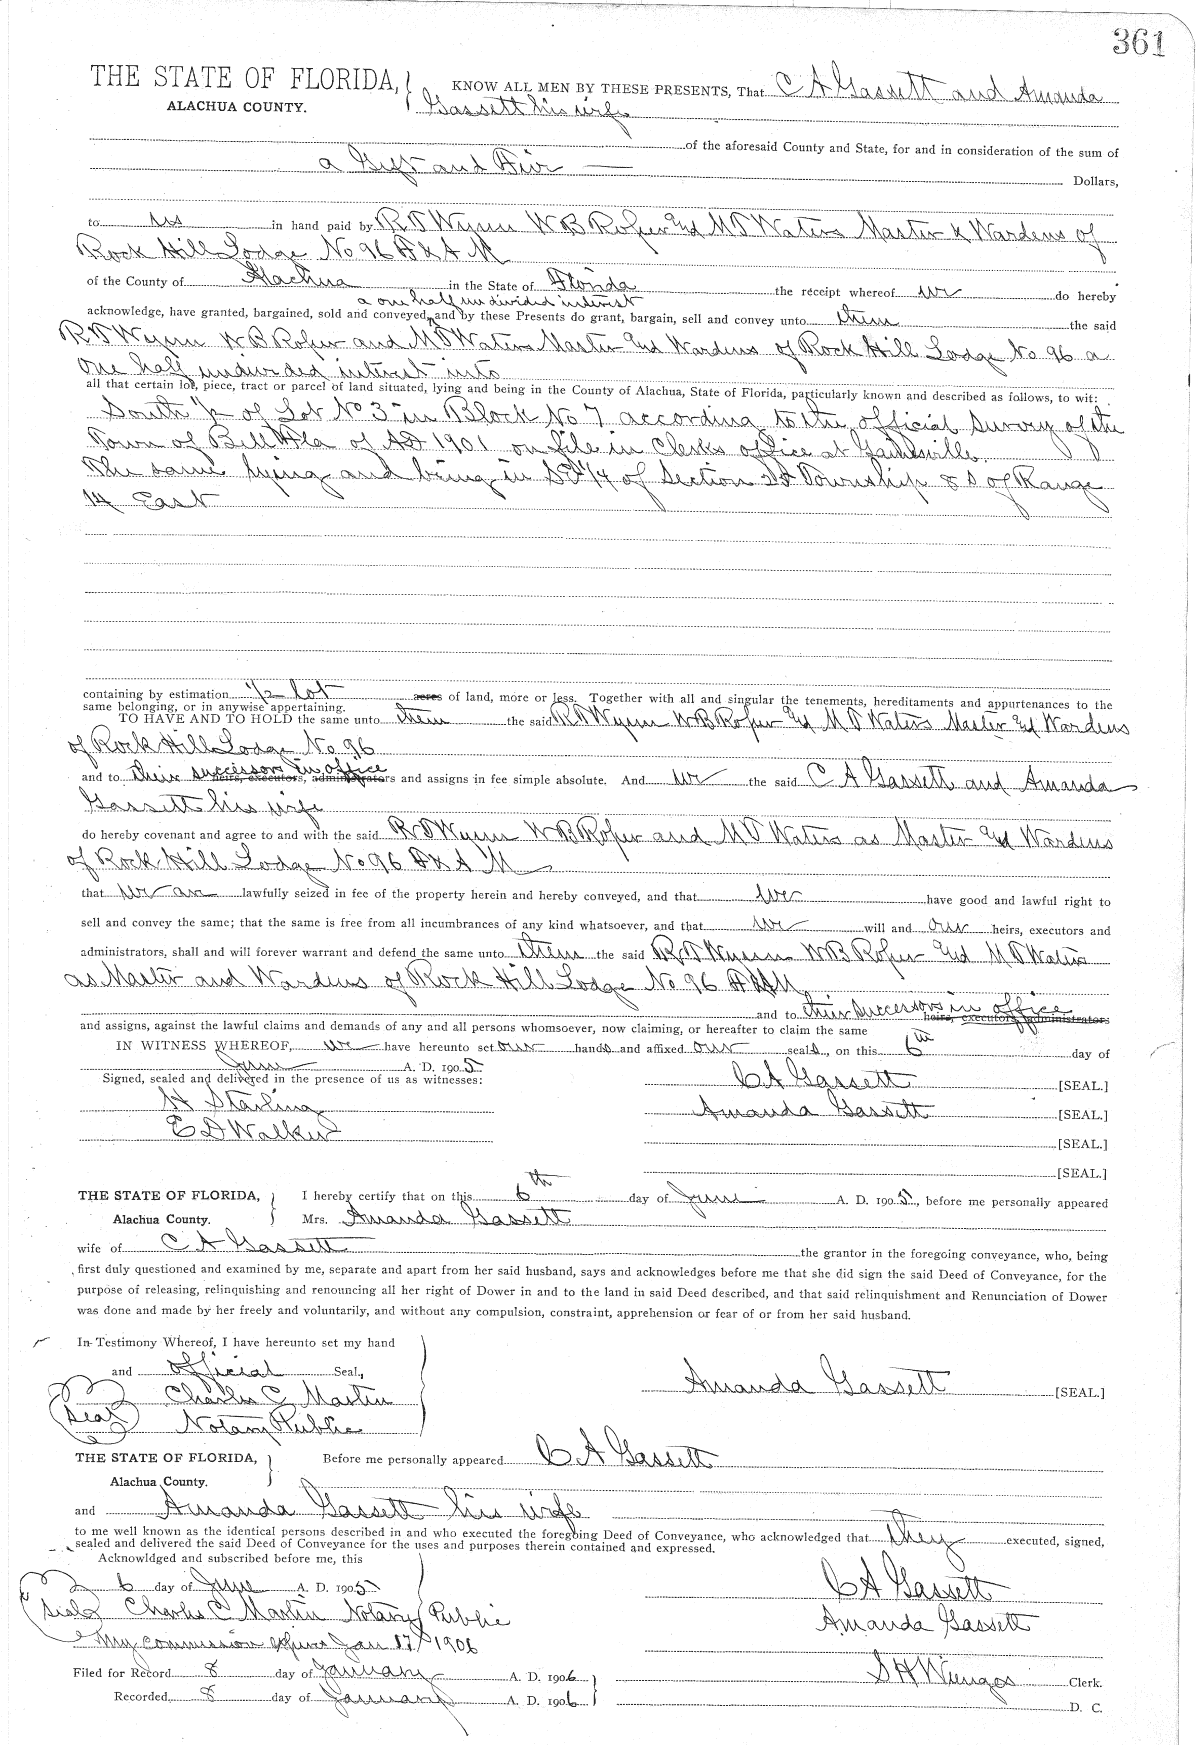 361
THE STATE OF FLORIDA, KNOW ALL MEN BY THESE PRESENTS, That C A Gassett and Amanda
ALACHUA COUNTY. Gassett his wife
of the aforesaid County and State, for and in consideration of the sum of
a Gift and Five Dollars,
to us in hand paid by R T Wynn W B Roper and M T Waters Master & Wardens of
Rock Hill Lodge No 96 F & A M
of the County of Alachua in the State of Florida the receipt whereof we do hereby
a one half undivided interest
acknowledge, have granted, bargained, sold and conveyed, and by these Presents do grant, bargain, sell and convey unto them the said
R T Wynn W B Roper and M T Waters Master and Wardens of Rock Hill Lodge No 96 a
one half undivided interest into
all that certain lot, piece, tract or parcel of land situated, lying and being in the County of Alachua, State of Florida, particularly known and described as follows, to wit:
South 1/2 of Lot No 3 in Block No 7 according to the official Survey of the
Town of Bell Fla of AD 1901 on file in Clerks office at Gainesville.
The same lying and being in 1/4 of Section Township 8 S of Range
14 East
containing by estimation 1/2 lot acres of land, more or less. Together with all and singular the tenements, hereditaments and appurtenances to the
same belonging, or in anywise appertaining.
TO HAVE AND TO HOLD the same unto them the said R T Wynn W B Roper and M T Waters Master and Wardens
of Rock Hill Lodge No 96
and to their successors in office heirs, executors, administrators and assigns in fee simple absolute. And we the said C A Gassett and Amanda
Gassett his wife
do hereby covenant and agree to and with the said R T Wynn W B Roper and M T Waters as Master and Wardens
of Rock Hill Lodge No 96 F & A M
that we are lawfully seized in fee of the property herein and hereby conveyed, and that we have good and lawful right to
sell and convey the same; that the same is free from all incumbrances of any kind whatsoever, and that we will and our heirs, executors and
administrators, shall and will forever warrant and defend the same unto them the said R T Wynn W B Roper and M T Waters
as Master and Wardens of Rock Hill Lodge No 96 F & A M
and to their successors in office heirs, executors, administrators
and assigns, against the lawful claims and demands of any and all persons whomsoever, now claiming, or hereafter to claim the same
IN WITNESS WHEREOF, we have hereunto set our hands and affixed our seals, on this 6th day of
June A. D. 1905
Signed, sealed and delivered in the presence of us as witnesses: C A Gassett [SEAL.]
H Starling Amanda Gassett [SEAL.]
E D Walker [SEAL.]
[SEAL.]
THE STATE OF FLORIDA, I hereby certify that on this 6th day of June A. D. 1905, before me personally appeared
Alachua County. Mrs. Amanda Gassett
wife of C A Gassett the grantor in the foregoing conveyance, who, being
first duly questioned and examined by me, separate and apart from her said husband, says and acknowledges before me that she did sign the said Deed of Conveyance, for the
purpose of releasing, relinquishing and renouncing all her right of Dower in and to the land in said Deed described, and that said relinquishment and Renunciation of Dower
was done and made by her freely and voluntarily, and without any compulsion, constraint, apprehension or fear of or from her said husband.
In Testimony Whereof, I have hereunto set my hand
and official Seal, Amanda Gassett [SEAL.]
Charles C Martin
Seal Notary Public
THE STATE OF FLORIDA, Before me personally appeared C A Gassett
Alachua County.
and Amanda Gassett his wife
to me well known as the identical persons described in and who executed the foregoing Deed of Conveyance, who acknowledged that they executed, signed,
sealed and delivered the said Deed of Conveyance for the uses and purposes therein contained and expressed.
Acknowldged and subscribed before me, this
6 day of June A. D. 1905 C A Gassett
Seal Charles C Martin Notary Public Amanda Gassett
My commission expires Jan 17 1906
Filed for Record 8 day of January A. D. 1906 S H Wienges Clerk.
Recorded 8 day of January A. D. 1906 D. C.